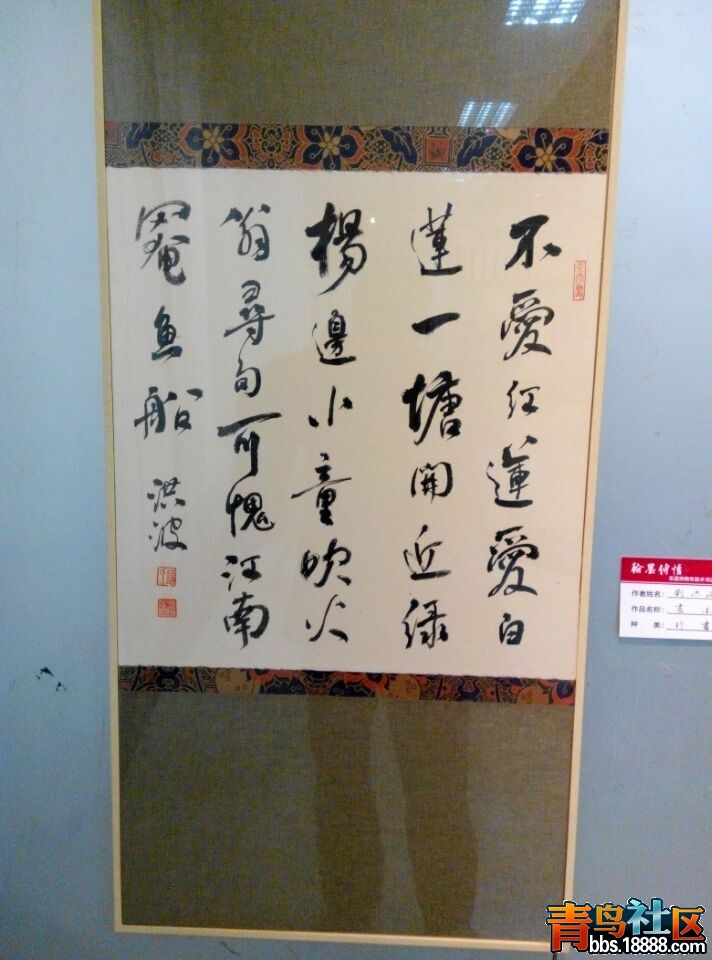 不愛红蓮愛白
蓮一塘開近绿
楊邊小童吹火
翁尋句可愧江南
罨魚船
洪波
翰墨傳情
作者姓名: 劉洪
作品名称: 書
种 类: 行書
青鸟社区
bbs.18888.com